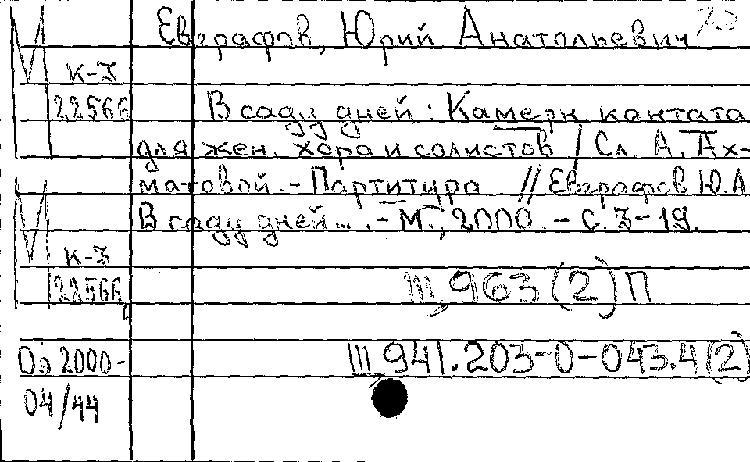 Евграфов, Юрий Анатольевич
М К-3
22566 В саду дней : Камерн кантата
для жен. хора и солистов / Сл. А. Ах-
матовой. - Партитура // Евграфов Ю.А
В саду дней... . - М., 2000. - С. 3-19.
М К-3
22566
III, 963 (2) П
III, 941.203-0-043.4 (2)
Оэ 2000-
04/44